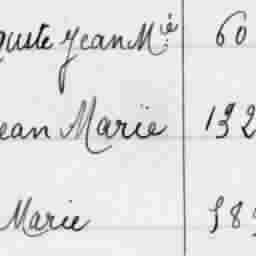 guste Jean Mie 60
ean Marie 132
Marie 585